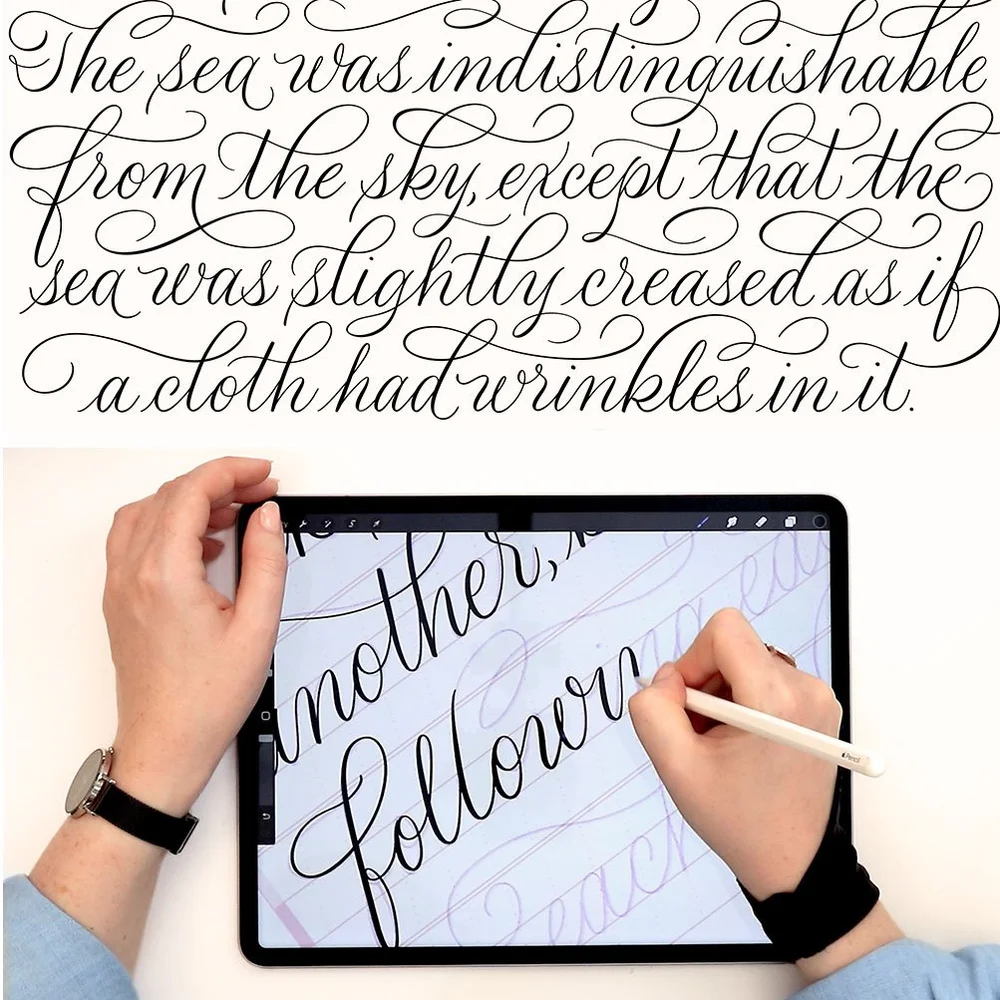 The sea was indistinguishable
from the sky, except that the
sea was slightly creased as if
a cloth had wrinkles in it.
another,
following
each
Pencil